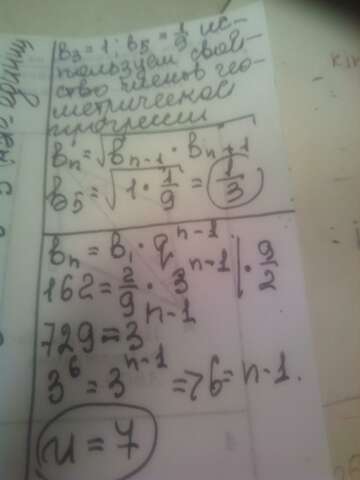 b₃ = 1; b₅ = 1/9 ис-
пользуем свой-
ство членов гео-
метрической
прогрессии
bₙ = √(bₙ₋₁ · bₙ₊₁)
b₅ = √(1 · 1/9) = 1/3
bₙ = b₁ · qⁿ⁻¹
162 = 2/9 · 3ⁿ⁻¹ | · 9/2
729 = 3ⁿ⁻¹
3⁶ = 3ⁿ⁻¹ => 6 = n-1.
n = 7